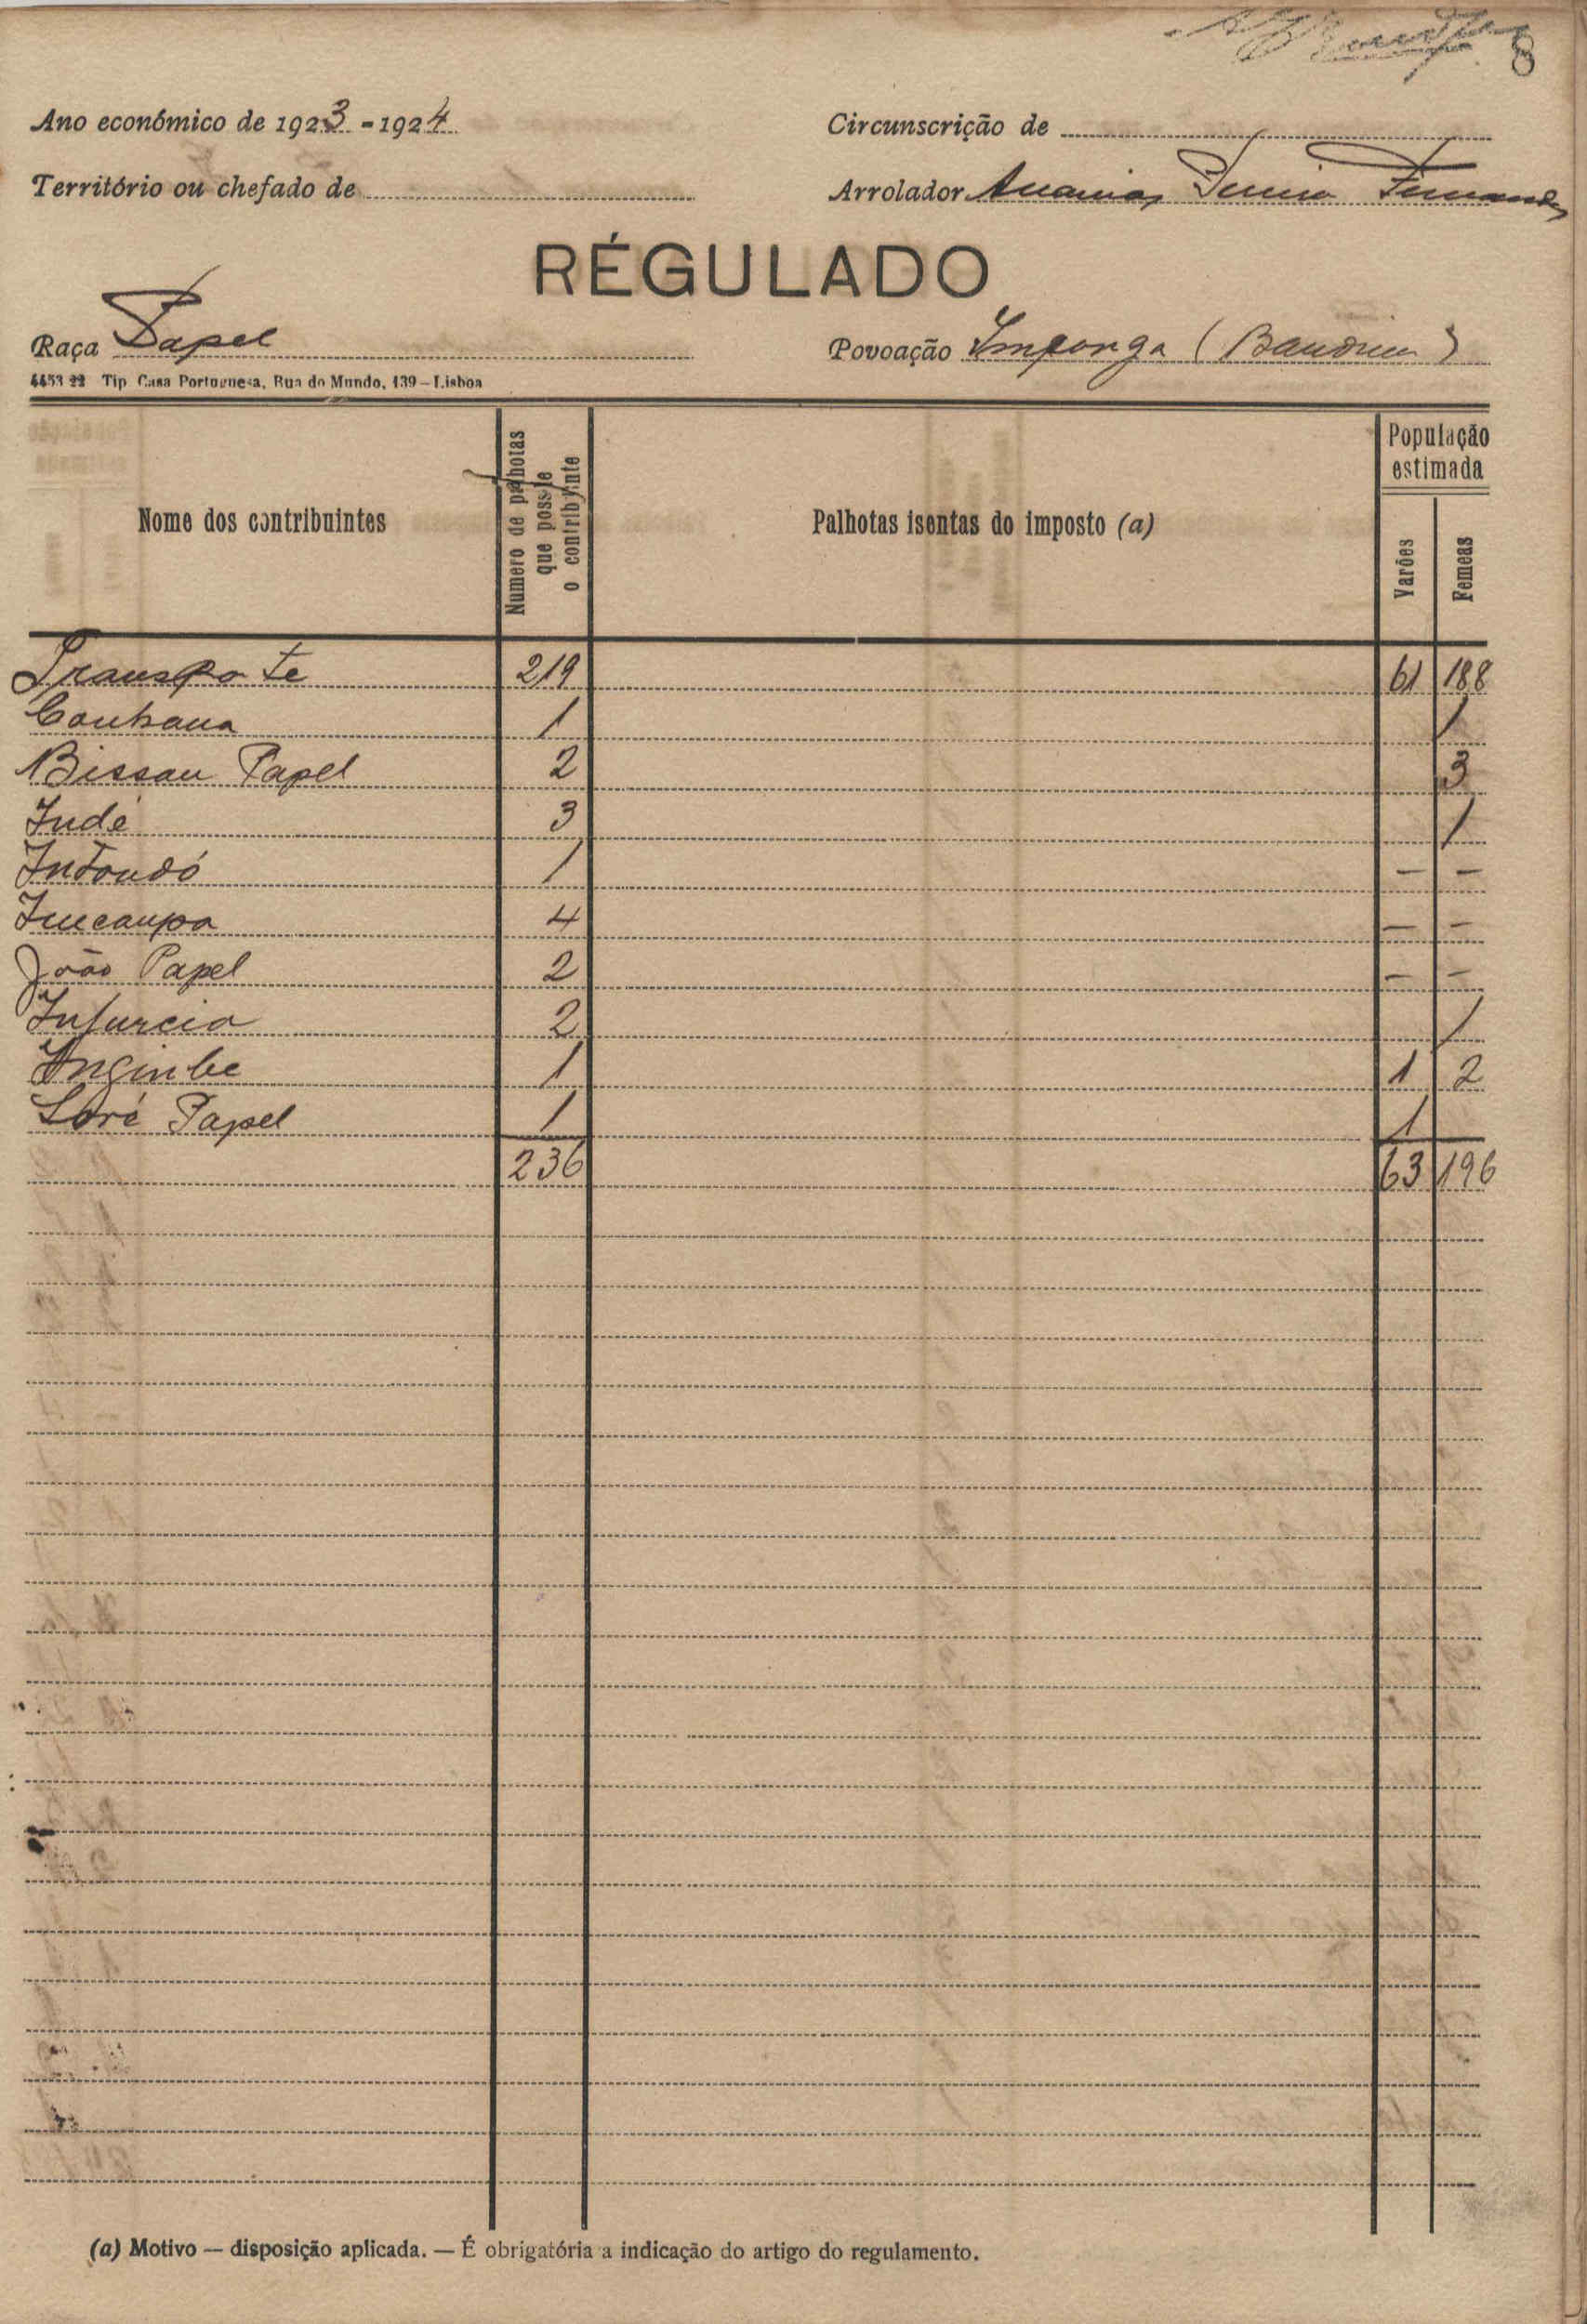 8
Ano económico de 1923-1924
Circunscrição de
Território ou chefado de
Arrolador Ananias Fernandes
RÉGULADO
Raça Papel
Povoação Imponga (Bandim)
4453 22 Tip Casa Portuguesa, Rua do Mundo, 139-Lisboa
Nome dos contribuintes
Numero de palhotas que possue o contribuinte
Palhotas isentas do imposto (a)
População estimada
Varões
Femeas
Transporte 219 61 188
Conhana 1 1
Bissau Papel 2 3
Indé 3 1
Intondó 1 - -
Imcanpa 4 - -
João Papel 2 - -
Infurcia 2 1
Inginbe 1 1 2
Soré Papel 1 1
236 63 196
(a) Motivo — disposição aplicada. — É obrigatória a indicação do artigo do regulamento.